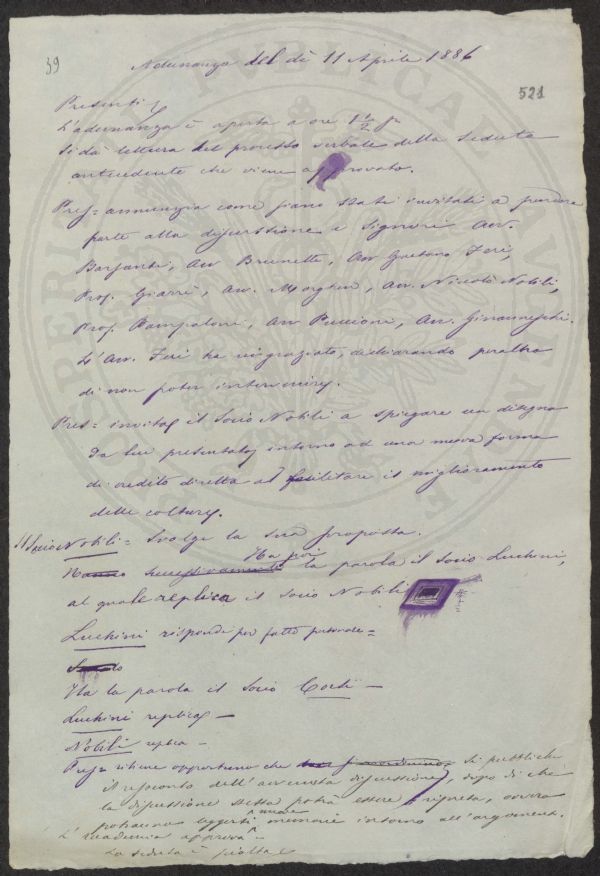 39
Adunanza del dì 11 Aprile 1886
521
Presenti
L'adunanza è aperta a ore 1 1/2 p
Si dà lettura del processo verbale della seduta
antecedente che viene approvato.
Pres= annunzia come siano stati invitati a prendere
parte alla discussione i Signori Avv.
Barsanti, Avv Brunetti, Avv Gaetano Feri,
Prof. Giarrè, Avv. Morghen, Avv. Nicolò Nobili,
Prof. Pampaloni, Avv Puccioni, Avv. Ginanneschi.
L'Avv. Feri ha ringraziato, dichiarando peraltro
di non poter intervenire.
Pres= invita il Socio Nobili a spiegare un disegno
da lui presentato intorno ad una nuova forma
di credito diretta a facilitare il miglioramento
delle culture.
Il Socio Nobili= Svolge la sua proposta.
Ha poi
successivamente la parola il Socio Luchini,
al quale replica il Socio Nobili
Luchini risponde per fatto personale=
Ha la parola il Socio Conti —
Luchini replica —
Nobili replica —
Pres= ritiene opportuno che si pubblichi
il resoconto dell'avvenuta discussione, dopo di che
la discussione stessa potrà essere ripresa, ovvero
potranno leggersi nuove memorie intorno all'argomento.
L'accademia approva
La seduta è sciolta
PROSPERITAS PVBLICA AVCTA